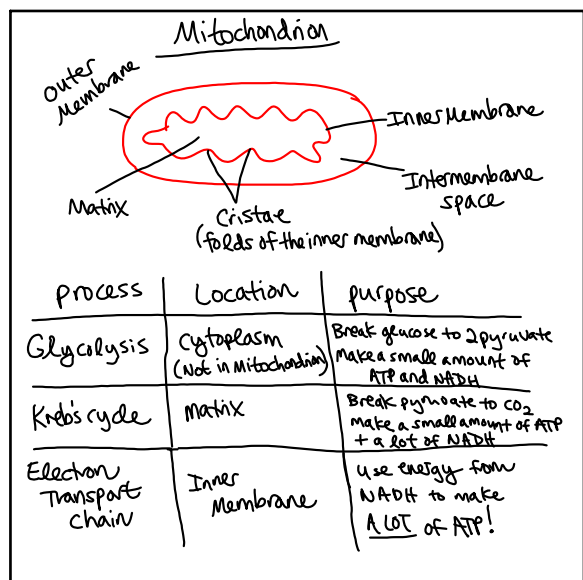 Mitochondrion
Outer
Membrane
Inner Membrane
Intermembrane
space
Matrix
Cristae
(folds of the inner membrane)
Process Location purpose
Glycolysis
Cytoplasm
(Not in Mitochondrion)
Break glucose to 2 pyruvate
Make a small amount of
ATP and NADH
Kreb's cycle
Matrix
Break pyruvate to CO2
make a small amount of ATP
+ a lot of NADH
Electron
Transport
chain
Inner
Membrane
use energy from
NADH to make
A LOT of ATP!